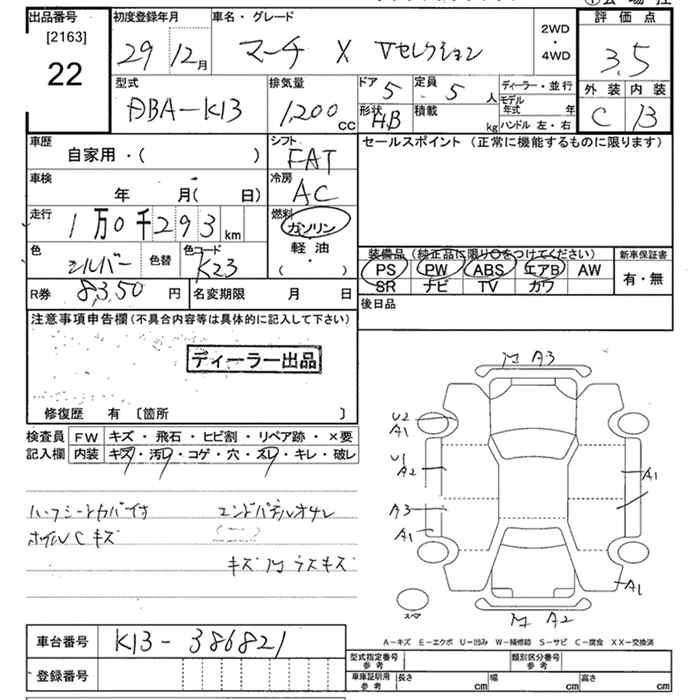 出品番号 [2163] 22
初度登録年月 29 12月
車名・グレード マーチ X Vセレクション
2WD・4WD
評価点 3.5
外装 C 内装 B
型式 DBA-K13
排気量 1,200 CC
ドア 5 定員 5 人
形状 H.B 積載 kg
ディーラー・並行
モデル年式 年
ハンドル 左・右
車歴 自家用・( )
シフト FAT
車検 年 月( 日)
冷房 AC
走行 1万0千293 km
燃料 ガソリン 軽油 ( ・ )
色 シルバー 色替 色コード K23
R券 8,350 円 名変期限 月 日
セールスポイント (正常に機能するものに限ります)
装備品 (純正品に限り○をつけてください)
PS PW ABS エアB AW
SR ナビ TV カワ
新車保証書 有・無
後日品
注意事項申告欄(不具合内容等は具体的に記入して下さい)
ディーラー出品
修復歴 有 〔箇所 〕
検査員記入欄
FW キズ・飛石・ヒビ割・リペア跡・×要
内装 キズ・汚レ・コゲ・穴・スレ・キレ・破レ
ハーフシートカバー付
ホイルCキズ
エンドパネルオサレ
M A3
U2
A1
U1
A2
A3
A1
A1
A1
スペ
M A2
A-キズ E-エクボ U-凹み W-補修跡 S-サビ C-腐食 XX-交換済
車台番号 K13-386821
登録番号
型式指定番号 参考 類別区分番号 参考
車庫証明用 参考 長さ cm 幅 cm 高さ cm